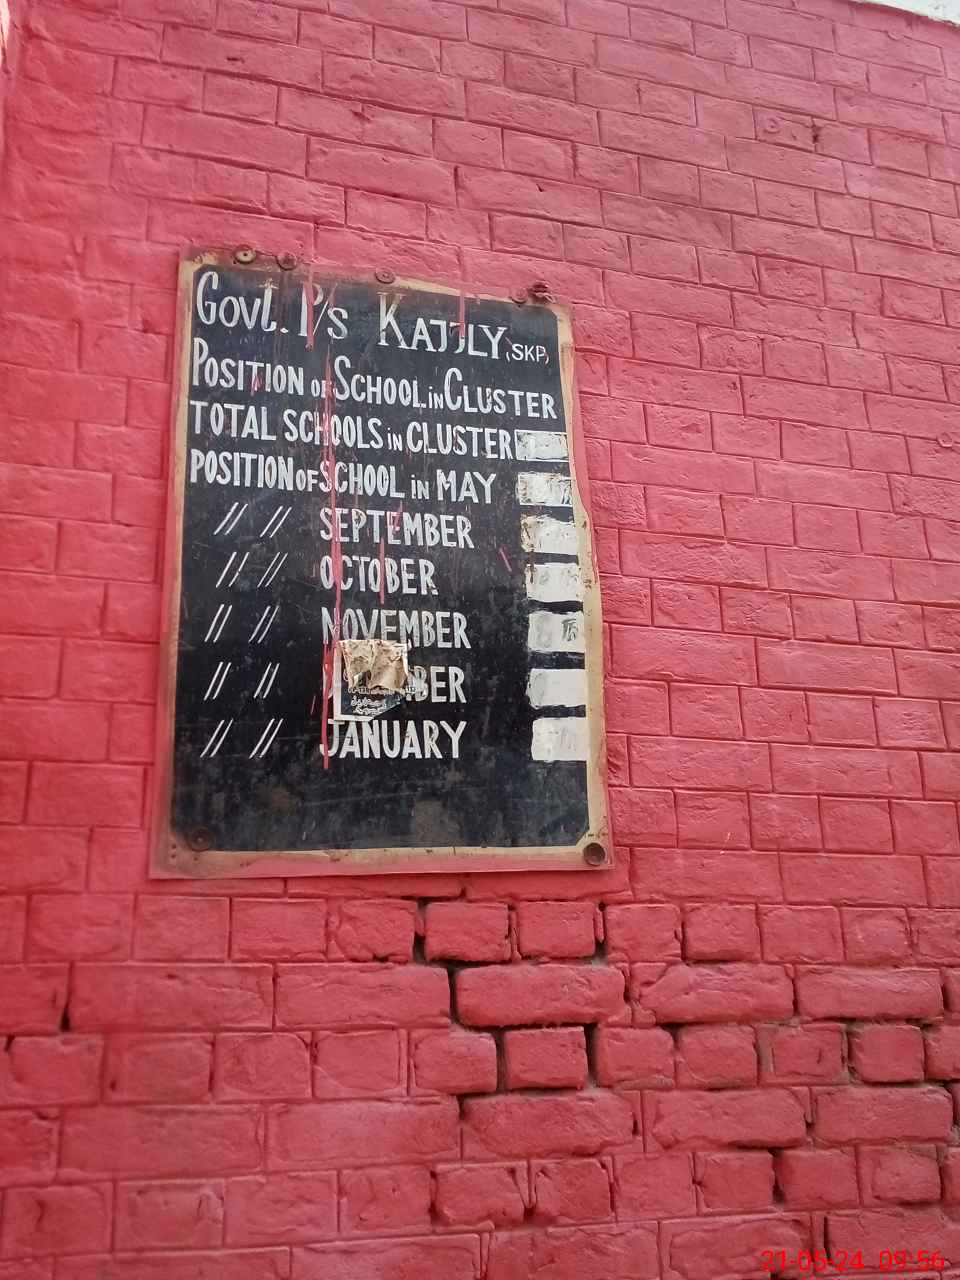 Govt. P/s KAJJLY (SKP)
POSITION OF SCHOOL in CLUSTER
TOTAL SCHOOLS in CLUSTER
POSITION OF SCHOOL in MAY
// // SEPTEMBER
// // OCTOBER
// // NOVEMBER
// // BER
// // JANUARY
21-05-24 09:56